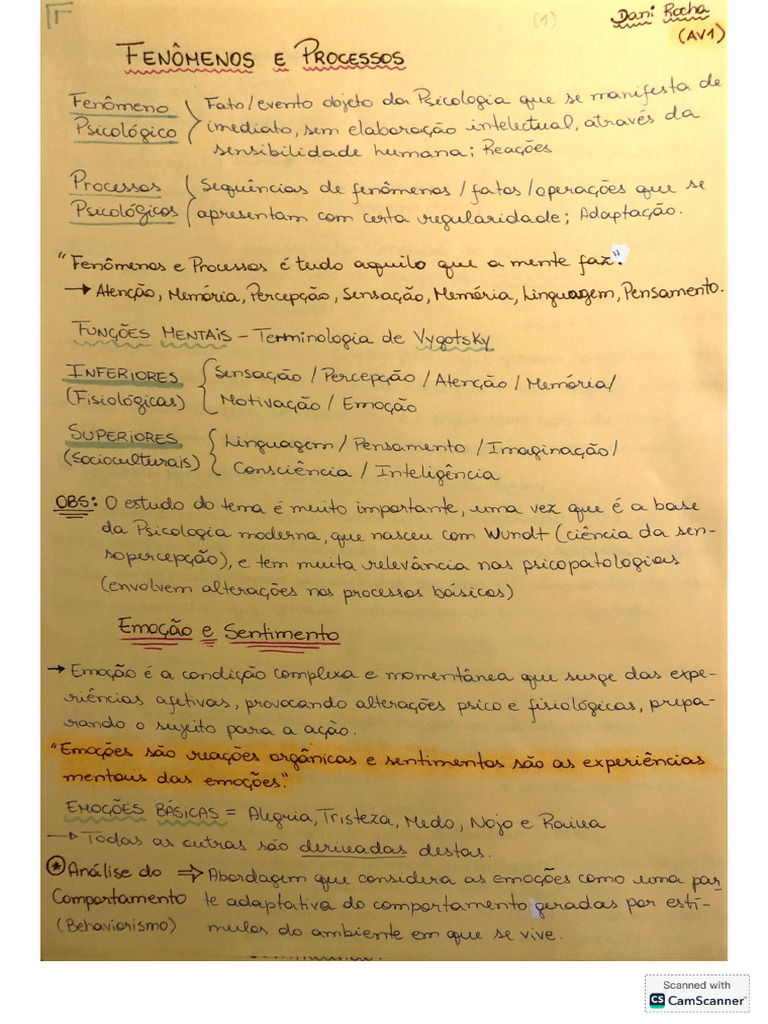 (1)
Dani Rocha
(AV1)
FENÔMENOS E PROCESSOS
Fenômeno Psicológico
Fato/evento objeto da Psicologia que se manifesta de
imediato, sem elaboração intelectual, através da
sensibilidade humana; Reações
Processos Psicológicos
Sequências de fenômenos/fatos/operações que se
apresentam com certa regularidade; Adaptação.
"Fenômenos e Processos é tudo aquilo que a mente faz".
→ Atenção, Memória, Percepção, Sensação, Memória, Linguagem, Pensamento.
FUNÇÕES MENTAIS – Terminologia de Vygotsky
INFERIORES (Fisiológicas)
Sensação / Percepção / Atenção / Memória/
Motivação / Emoção
SUPERIORES (Socioculturais)
Linguagem / Pensamento / Imaginação/
Consciência / Inteligência
OBS: O estudo do tema é muito importante, uma vez que é a base
da Psicologia moderna, que nasceu com Wundt (ciência da sen-
sopercepção), e tem muita relevância nas psicopatologias
(envolvem alterações nos processos básicos)
Emoção e Sentimento
→ Emoção é a condição complexa e momentânea que surge das expe-
riências afetivas, provocando alterações psico e fisiológicas, prepa-
rando o sujeito para a ação.
"Emoções são reações orgânicas e sentimentos são as experiências
mentais das emoções."
EMOÇÕES BÁSICAS = Alegria, Tristeza, Medo, Nojo e Raiva
→ Todas as outras são derivadas destas.
Análise do Comportamento (Behaviorismo)
⇒ Abordagem que considera as emoções como uma par
te adaptativa do comportamento geradas por estí-
mulos do ambiente em que se vive.
Scanned with
CS CamScanner